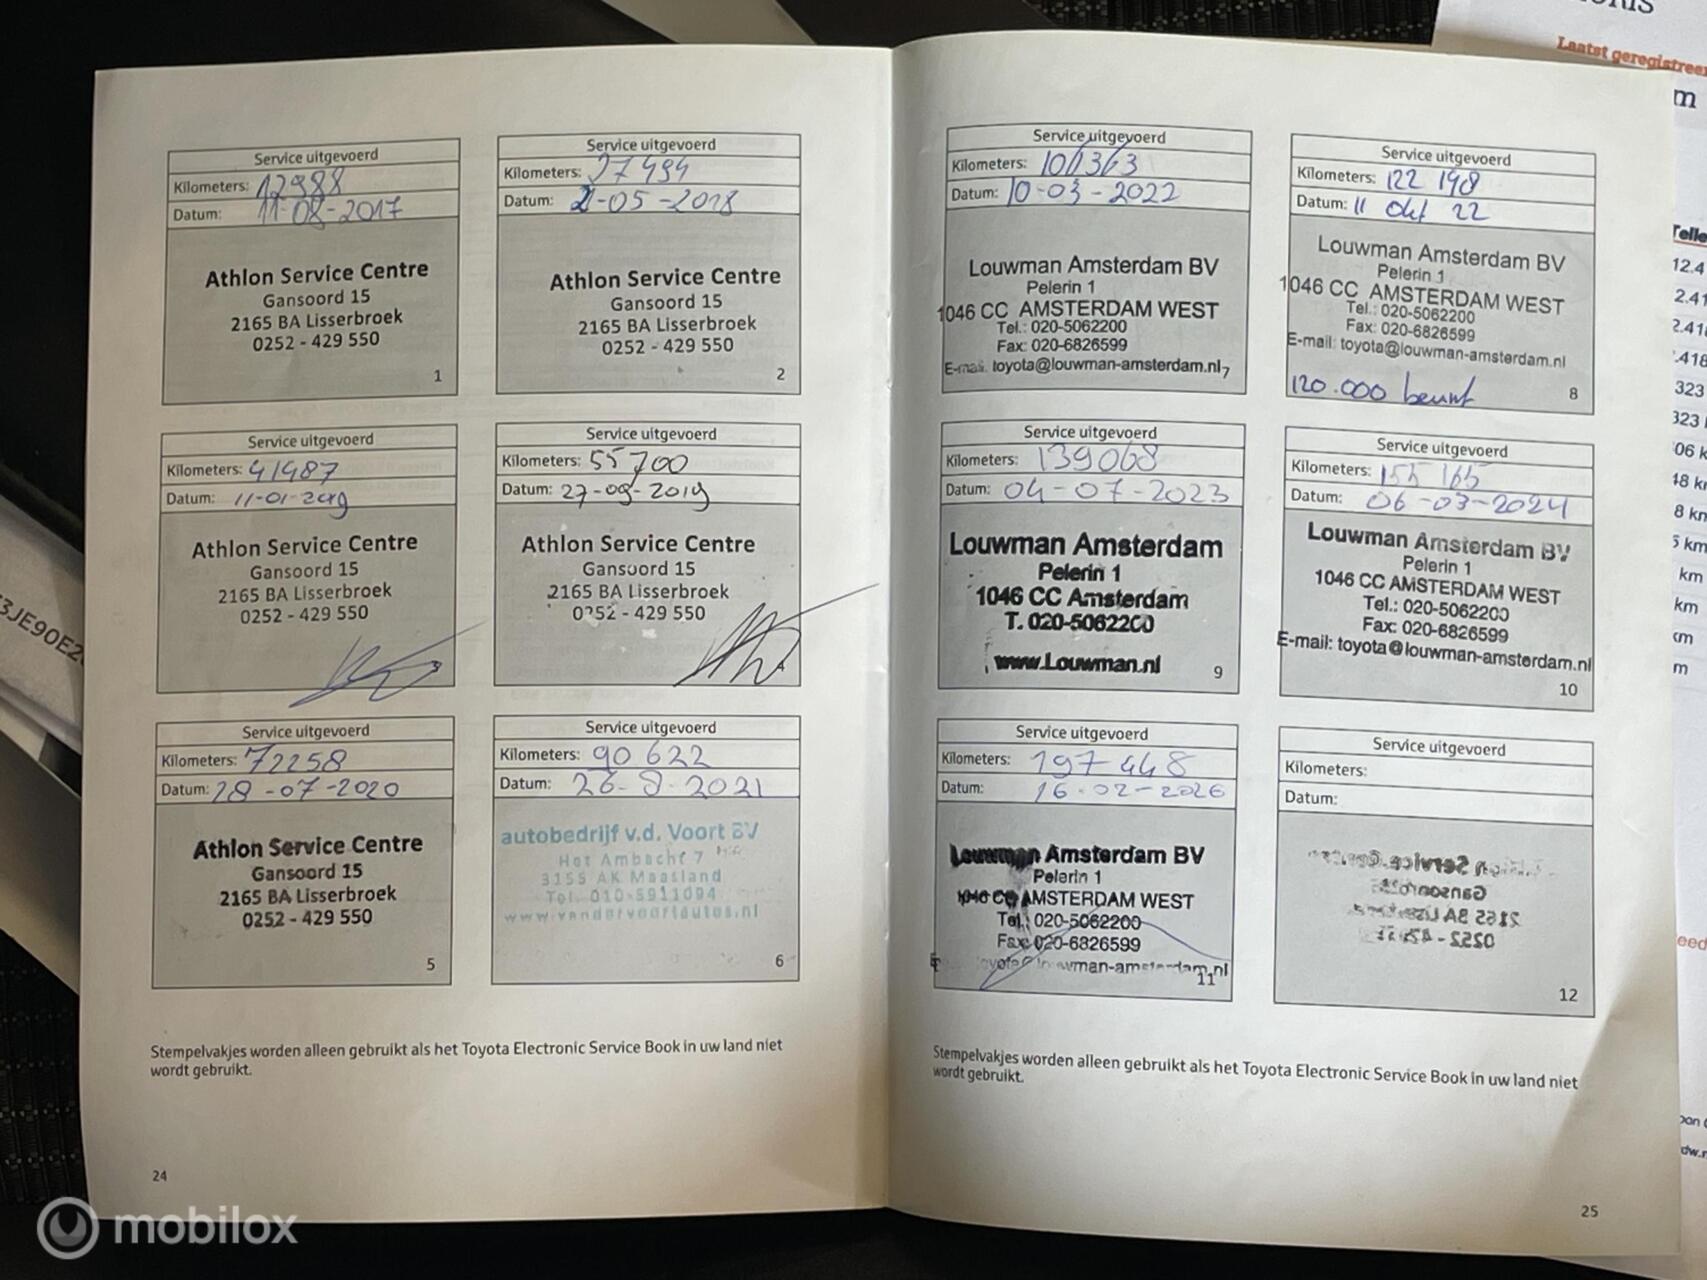 Service uitgevoerd
Kilometers: 12988
Datum: 11-08-2017
Athlon Service Centre
Gansoord 15
2165 BA Lisserbroek
0252 - 429 550
1
Service uitgevoerd
Kilometers: 27494
Datum: 2-05-2018
Athlon Service Centre
Gansoord 15
2165 BA Lisserbroek
0252 - 429 550
2
Service uitgevoerd
Kilometers: 41987
Datum: 11-01-2019
Athlon Service Centre
Gansoord 15
2165 BA Lisserbroek
0252 - 429 550
Service uitgevoerd
Kilometers: 55700
Datum: 27-09-2019
Athlon Service Centre
Gansoord 15
2165 BA Lisserbroek
0252 - 429 550
Service uitgevoerd
Kilometers: 72258
Datum: 28-07-2020
Athlon Service Centre
Gansoord 15
2165 BA Lisserbroek
0252 - 429 550
5
Service uitgevoerd
Kilometers: 90 622
Datum: 26-8-2021
autobedrijf v.d. Voort BV
Het Ambacht 7
3155 AK Maasland
Tel. 010-5911094
www.vandervoortautos.nl
6
Stempelvakjes worden alleen gebruikt als het Toyota Electronic Service Book in uw land niet
wordt gebruikt.
24
Service uitgevoerd
Kilometers: 101363
Datum: 10-03-2022
Louwman Amsterdam BV
Pelerin 1
1046 CC AMSTERDAM WEST
Tel.: 020-5062200
Fax: 020-6826599
E-mail: toyota@louwman-amsterdam.nl
7
Service uitgevoerd
Kilometers: 122 198
Datum: 11 okt 22
Louwman Amsterdam BV
Pelerin 1
1046 CC AMSTERDAM WEST
Tel.: 020-5062200
Fax: 020-6826599
E-mail: toyota@louwman-amsterdam.nl
120.000 beurt
8
Service uitgevoerd
Kilometers: 139068
Datum: 04-07-2023
Louwman Amsterdam
Pelerin 1
1046 CC Amsterdam
T. 020-5062200
www.Louwman.nl
9
Service uitgevoerd
Kilometers: 155 165
Datum: 06-03-2024
Louwman Amsterdam BV
Pelerin 1
1046 CC AMSTERDAM WEST
Tel.: 020-5062200
Fax: 020-6826599
E-mail: toyota@louwman-amsterdam.nl
10
Service uitgevoerd
Kilometers: 197 448
Datum: 16-02-2026
Louwman Amsterdam BV
Pelerin 1
1046 CC AMSTERDAM WEST
Tel.: 020-5062200
Fax: 020-6826599
toyota@louwman-amsterdam.nl
11
Service uitgevoerd
Kilometers:
Datum:
12
Stempelvakjes worden alleen gebruikt als het Toyota Electronic Service Book in uw land niet
wordt gebruikt.
25
Laatst geregistreer
mobilox